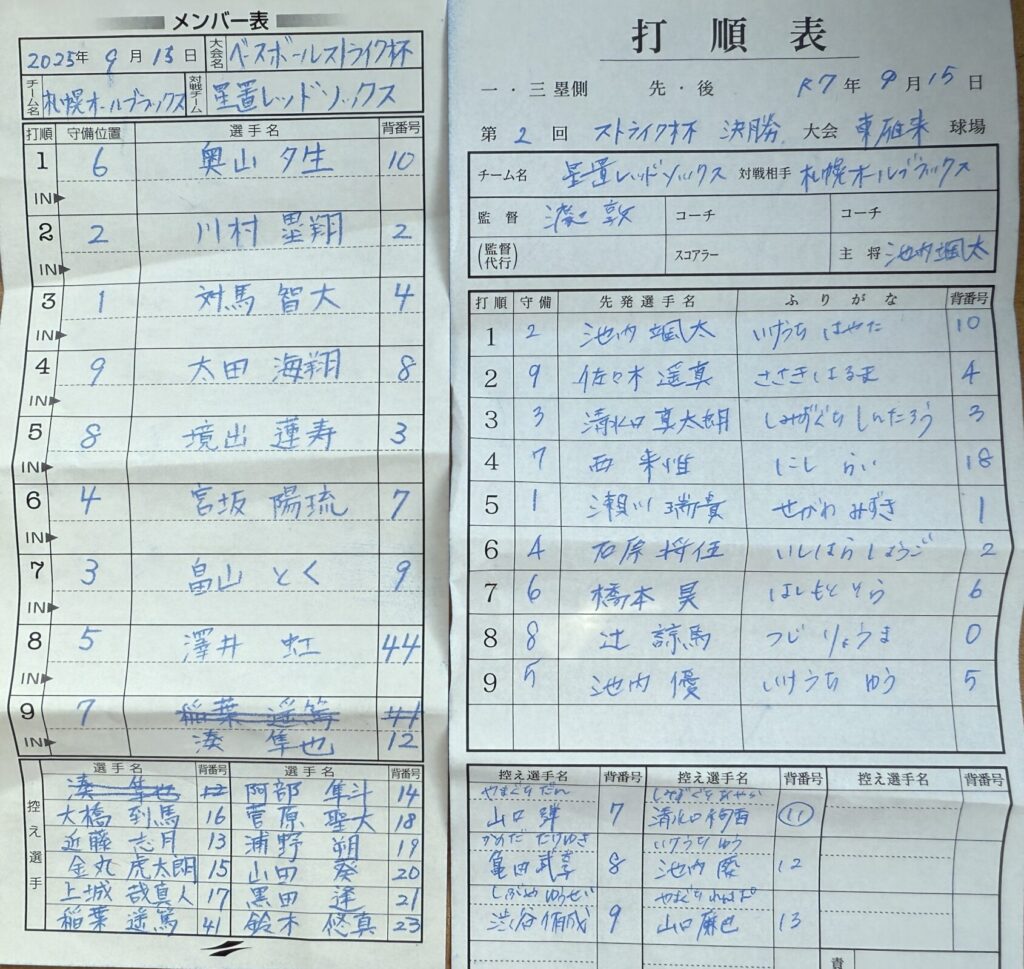 メンバー表
2025年 9月 15日 大会名 ベースボールストライク杯
チーム名 札幌オールブラックス 対戦チーム 星置レッドソックス
打順 守備位置 選手名 背番号
1 6 奥山 夕生 10
IN▶
2 2 川村 塁翔 2
IN▶
3 1 対馬 智大 4
IN▶
4 9 太田 海翔 8
IN▶
5 8 境出 蓮寿 3
IN▶
6 4 宮坂 陽琉 7
IN▶
7 3 畠山 とく 9
IN▶
8 5 澤井 虹 44
IN▶
9 7 稲葉 遥篤 41
IN▶ 湊 隼也 12
控え選手
選手名 背番号 選手名 背番号
湊 隼也 12 阿部 隼斗 14
大橋 到馬 16 菅原 聖大 18
近藤 志月 13 浦野 朔 19
金丸 虎太朗 15 山田 葵 20
上城 哉真人 17 黒田 逢 21
稲葉 遥篤 41 鈴木 悠真 23
打順表
一・三塁側 先・後 R7年 9月 15日
第 2 回 ストライク杯 決勝 大会 東雁来 球場
チーム名 星置レッドソックス 対戦相手 札幌オールブラックス
監督 敦 コーチ コーチ
(監督代行) スコアラー 主将 池内 颯太
打順 守備 先発選手名 ふりがな 背番号
1 2 池内 颯太 いけうち はやた 10
2 9 佐々木 遥真 ささき はるま 4
3 3 清水口 真太朗 しみずぐち しんたろう 3
4 7 西 来惟 にし らい 18
5 1 瀬川 瑞貴 せがわ みずき 1
6 4 石原 将伍 いしはら しょうご 2
7 6 橋本 昊 はしもと そら 6
8 8 辻 諒馬 つじ りょうま 0
9 5 池内 優 いけうち ゆう 5
控え選手名 背番号 控え選手名 背番号 控え選手名 背番号
やまぐち だん しみずぐち あやか
山口 7 清水口 11
かめだ たけゆき いけうち ゆう
亀田 武幸 8 池内 12
しぶや ゆうせい やまぐち
渋谷 侑成 9 山口 13
責